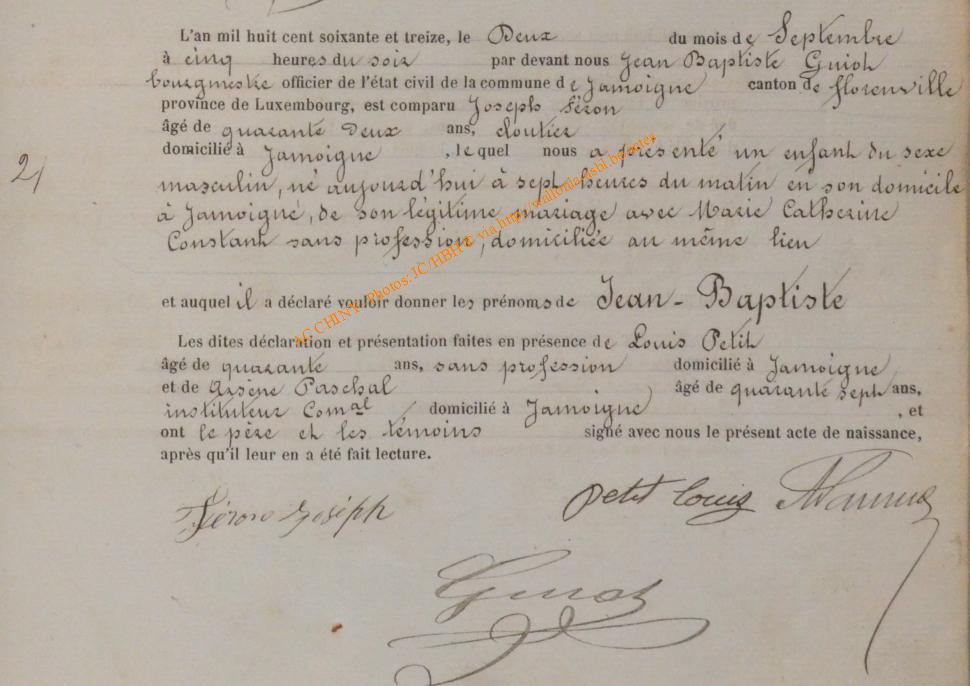 L'an mil huit cent soixante et treize, le Deux du mois de Septembre
à cinq heures du soir par devant nous Jean Baptiste Guiot
bourgmestre officier de l'état civil de la commune de Jamoigne canton de florenville
province de Luxembourg, est comparu Joseph Féron
âgé de quarante Deux ans, cloutier
domicilié à Jamoigne, lequel nous a présenté un enfant du sexe
21
masculin, né aujourd'hui à sept heures du matin en son domicile
à Jamoigne, de son légitime mariage avec Marie Catherine
Constant sans profession, domiciliée au même lieu
et auquel il a déclaré vouloir donner les prénoms de Jean-Baptiste
Les dites déclaration et présentation faites en présence de Louis Petit
âgé de quarante ans, sans profession domicilié à Jamoigne
et de Arsène Paschal âgé de quarante sept ans,
instituteur Comal domicilié à Jamoigne, et
ont le père et les témoins signé avec nous le présent acte de naissance,
après qu'il leur en a été fait lecture.
Féron Joseph petit louis
Guiot
AC CHINY - Photos: JC/HBH/C via http://walloniaushi.be